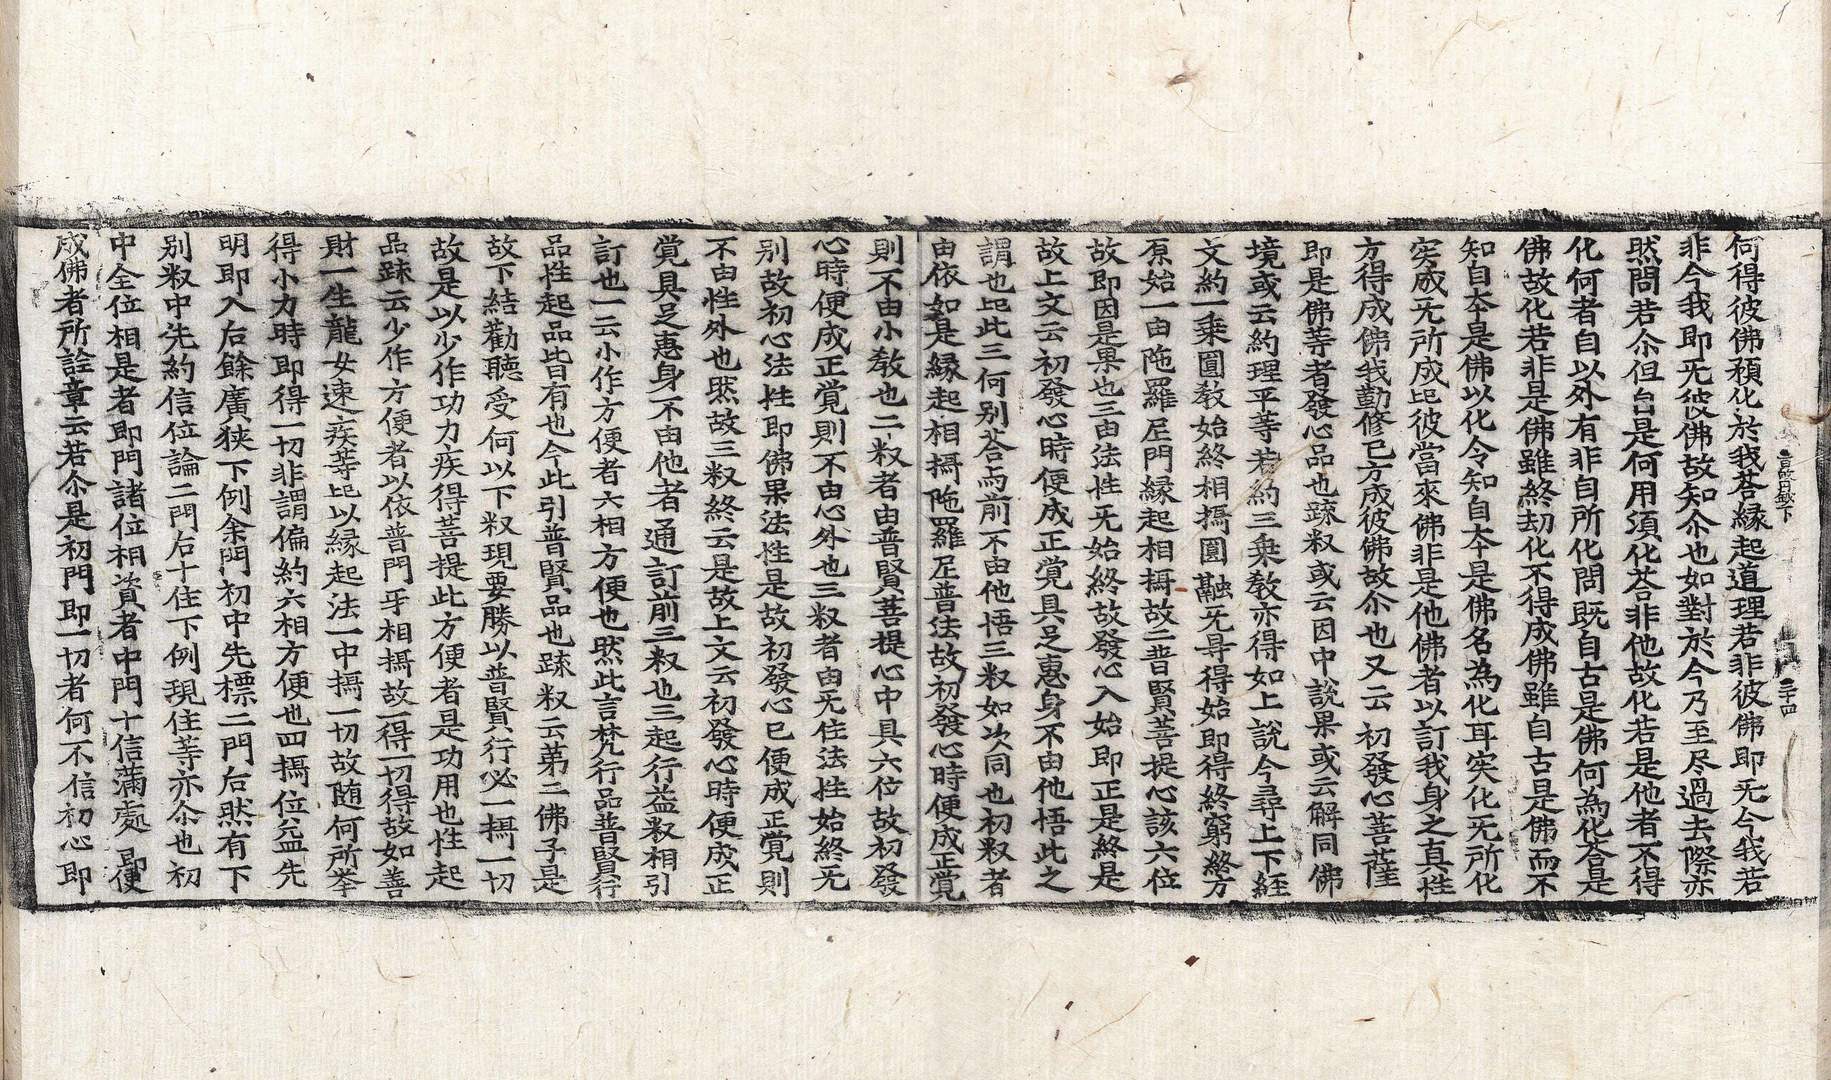 何得彼佛預化於我荅縁起道理若非彼佛即无今我若
非今我即无彼佛故知尒也如對於今乃至尽過去際亦
然問若尒但自是何用須化荅非他故化若是他者不得
化何者自以外有非自所化問既自古是佛何為化荅是
佛故化若非是佛雖終劫化不得成佛雖自古是佛而不
知自夲是佛以化令知自夲是佛名為化耳实化无所化
实成无所成比彼當來佛非是他佛者以訂我身之真性
方得成佛我勤修已方成彼佛故尒也又云初發心菩薩
即是佛等者發心品也䟽釈或云因中說果或云解同佛
境或云約理平等若約三乗敎亦得如上說今尋上下経
文約一乗圓敎始終相攝圓融无㝵得始即得終窮終方
原始一由陁羅尼門縁起相攝故二普賢菩提心該六位
故即因是果也三由法性无始終故發心入始即正是終是
故上文云初發心時便成正覺具足惠身不由他悟此之
謂也比此三何别荅与前不由他悟三釈如次同也初釈者
由依如是縁起相攝陁羅尼普法故初發心時便成正覺
則不由小敎也二釈者由普賢菩提心中具六位故初發
心時便成正覺則不由心外也三釈者由无住法性始終无
别故初心法性即佛果法性是故初發心已便成正覺則
不由性外也然故三釈終云是故上文云初發心時便成正
覺具足惠身不由他者通訂前三釈也三起行益釈相引
訂也一云小作方便者六相方便也然此言梵行品普賢行
品性起品皆有也今此引普賢品也䟽釈云苐二佛子是
故下結勸聽受何以下釈現要勝以普賢行必一攝一切
故是以少作功力疾得菩提此方便者是功用也性起
品䟽云少作方便者以依普門㸦相攝故一得一切得故如善
財一生龍女速疾等比以縁起法一中攝一切故随何所举
得小力時即得一切非謂偏約六相方便也四攝位益先
明即入后餘廣狹下例余門初中先標二門后然有下
别釈中先約信位論二門后十住下例現住等亦尒也初
中全位相是者即門諸位相資者中門十信滿處即便
成佛者所詮章云若尒是初門即一切者何不信初心即